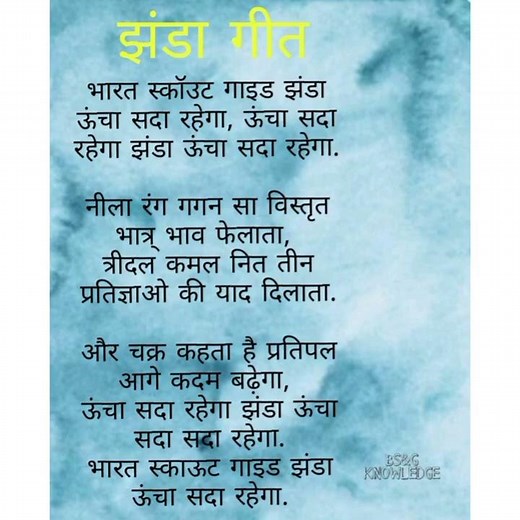 झंडा गीत
भारत स्कॉउट गाइड झंडा
ऊंचा सदा रहेगा, ऊंचा सदा
रहेगा झंडा ऊंचा सदा रहेगा.
नीला रंग गगन सा विस्तृत
भात्र् भाव फेलाता,
त्रीदल कमल नित तीन
प्रतिज्ञाओ की याद दिलाता.
और चक्र कहता है प्रतिपल
आगे कदम बढ़ेगा,
ऊंचा सदा रहेगा झंडा ऊंचा
सदा सदा रहेगा.
भारत स्काऊट गाइड झंडा
ऊंचा सदा रहेगा.
BS&G
KNOWLEDGE